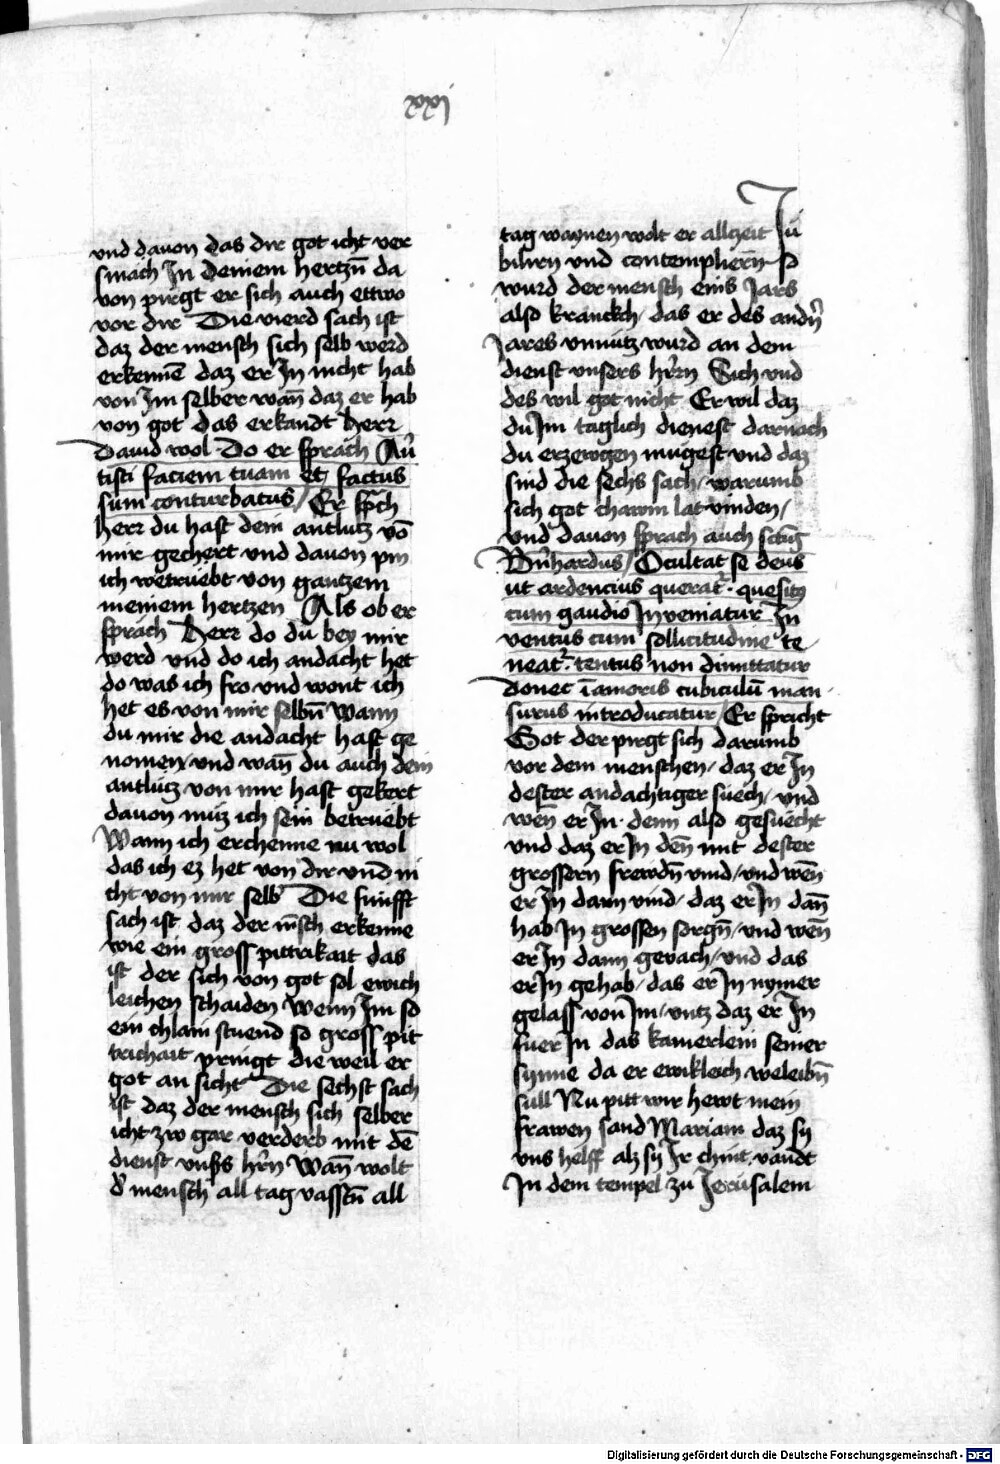 xxj
vnd dauon das dir got icht ver
smach In deinem hertzn̄ da
von pirgt er sich auch ettwo
vor dir Die vierd sach ist
daz der mensch sich selb werd
erkennē daz er In nicht hab
von Im selber wan̄ daz er hab
von got das erkandt herr
Dauid wol Do er sprach Au̇
tisti faciem tuam et factus
sum conturbatus / Er sp̄ch
herr du hast dein antlutz vō
mir gechert vnd dauon pin
ich wetruebt von gantzem
meinem hertzen Als ob er
sprach Herr do du bey mir
werd vnd do ich andacht het
do was ich fro vnd wont ich
het es von mir selbn̄ Wann
du mir die andacht hast ge
nomen vnd wan̄ du auch dein
antlutz von mir hast gekert
dauon muz ich sein betruebt
Wann ich erchenne nu wol
das ich ez het von dir vnd ni
cht von mir selb Die funfft
sach ist daz der mn̄sch erkenne
wie ein gross pittrikait das
ist der sich von got sol ewich
leichen schaiden Wenn Im so
ein chlain stuend so gross pit
trichait pringt die weil er
got an sicht Die sechst sach
ist daz der mensch sich selber
icht zw gar verderb mit dē
dienst vnss hr̄n Wan̄ wolt
d' mensch all tag vasstn̄ all
tag waynen wolt er allczeit Ju
bilirn vnd contempliern so
wurd der mensch eins Jars
also kranckh / das er des andn̄
Jares vnnutz wurd an dem
dienst vnsers hr̄rn Sich vnd
des wil got nicht Er wil daz
du Im taglich dienest darnach
du erzewgen mugest vnd daz
sind die sechs sach / warumb
sich got chawm lat vinden /
vnd dauon sprach auch sctūs
Bn̄hardus / Ocultat se deus
ut ardencius querat' . quesitq
cum gaudio Inueniatur In
ventus cum sollicitudine te
neat' . tentus non dimittatur
donec ī amoris cubiculū man
surus introducatur / Er spricht
Got der pirgt sich darumb
vor dem menschen / daz er In
dester andachtiger suech / vnd
wen̄ er In denn also gesuecht
vnd daz er In den̄ mit dester
grossern frewdn̄ vind / vnd wen̄
er In dann vind / daz er In dan̄
hab In grossen sorgn̄ / vnd wen̄
er In dann gevach / vnd das
er In gehab / das er In nymer
gelass von Im / vntz daz er In
fuer In das kamerlein seiner
synne da er ewikleich weleibn̄
sull Nu pitt wir hewt mein
frawen sand Mariam daz sy
vns helff alz sy Ir chint vandt
In dem tempel zu Jerusalem
Digitalisierung gefördert durch die Deutsche Forschungsgemeinschaft - DFG